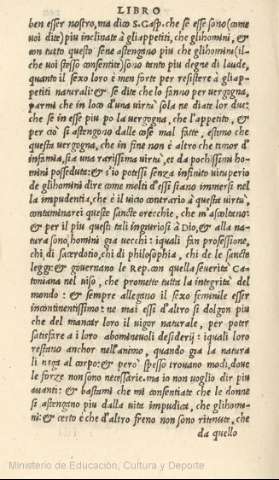 LIBRO
ben esser nostro, ma dico S. Gasp. che se esse sono (come
uoi dite) piu inclinate à gli appetiti, che glihomini, &
con tutto questo sene astengono piu che glihomini (il-
che uoi stesso consentite) sono tanto piu degne di laude,
quanto il sexo loro è men forte per resistere à gliap-
petiti naturali: & se dite che lo fanno per uergogna,
parmi che in loco d'una uirtù sola ne diate lor due:
che se in esse piu po la uergogna, che l'appetito, &
per ciò si astengono dalle cose mal fatte, estimo che
questa uergogna, che in fine non è altro che timor d'
infamia, sia una rarissima uirtù, et da pochissimi ho-
mini posseduta: & s'io potessi senza infinito uituperio
de glihomini dire come molti d'essi siano immersi nel
la impudentia, che è il uicio contrario à questa uirtù,
contaminarei queste sancte orecchie, che m'ascoltano:
& per il piu questi tali ingiuriosi à Dio, & alla na-
tura sono homini gia uecchi: iquali fan professione,
chi di sacerdotio, chi di philosophia, chi de le sancte
leggi: & gouernano le Rep. con quella seuerità Ca-
toniana nel uiso, che promette tutta la integrità del
mondo: & sempre allegano il sexo feminile esser
incontinentissimo: ne mai essi d'altro si dolgon piu
che del mancar loro il uigor naturale, per poter
satisfare a i loro abomineuoli desiderij: iquali loro
restano anchor nell'animo, quando gia la natura
li niega al corpo: & però spesso trouano modi, doue
le forze non sono necessarie. ma io non uoglio dir piu
auanti: & bastami che mi consentiate che le donne
si astengano piu dalla uita impudica, che glihomi-
ni: & certo è che d'altro freno non sono ritenute, che
da quello
Ministerio de Educación, Cultura y Deporte